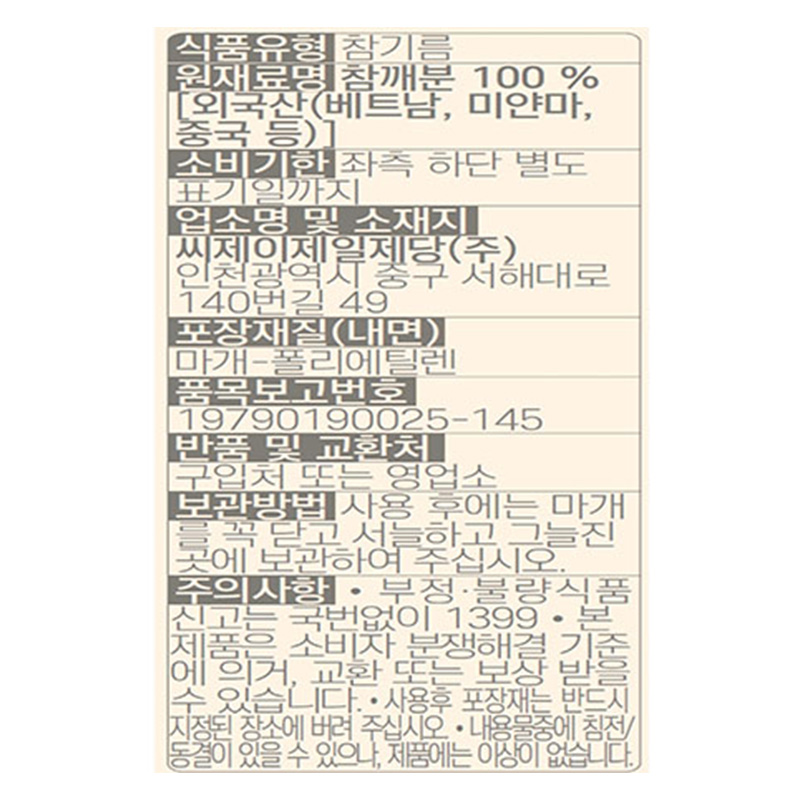 식품유형 참기름
원재료명 참깨분 100 %
[외국산(베트남, 미얀마,
중국 등)]
소비기한 좌측 하단 별도
표기일까지
업소명 및 소재지
씨제이제일제당(주)
인천광역시 중구 서해대로
140번길 49
포장재질(내면)
마개-폴리에틸렌
품목보고번호
19790190025-145
반품 및 교환처
구입처 또는 영업소
보관방법 사용 후에는 마개
를 꼭 닫고 서늘하고 그늘진
곳에 보관하여 주십시오.
주의사항 • 부정·불량식품
신고는 국번없이 1399 • 본
제품은 소비자 분쟁해결 기준
에 의거, 교환 또는 보상 받을
수 있습니다. • 사용후 포장재는 반드시
지정된 장소에 버려 주십시오 • 내용물중에 침전/
동결이 있을 수 있으나, 제품에는 이상이 없습니다.